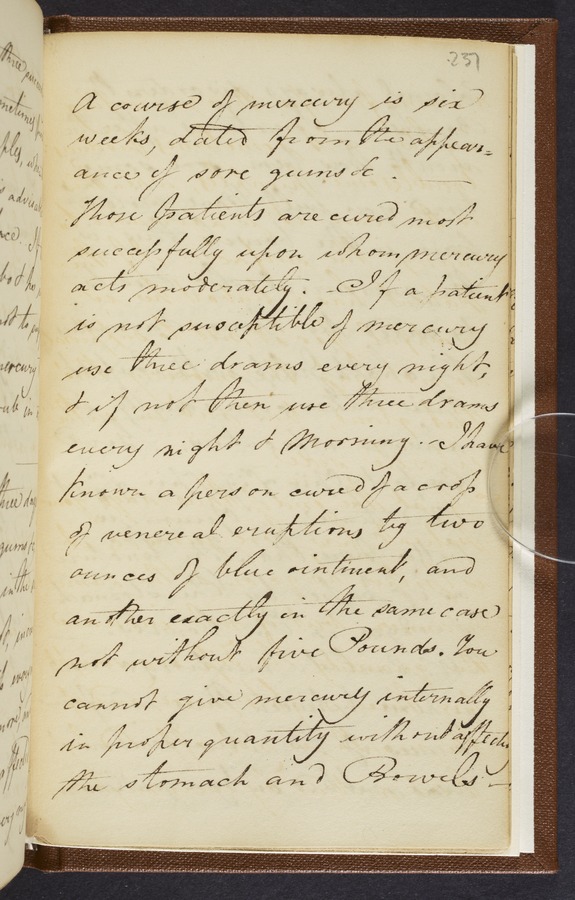 237
A course of mercury is six
weeks, dated from the appear=
ance of sore gums &c. —
Those patients are cured most
successfully upon whom mercury
acts moderately. - If a patient
is not susceptible of mercury
use three drams every night,
& if not then use three drams
every night & Morning. - I have
known a person cured of a crop
of venereal eruptions by two
ounces of blue ointment, and
another exactly in the same case
not without five Pounds. You
cannot give mercury internally
in proper quantity without affectg
the stomach and Bowels -